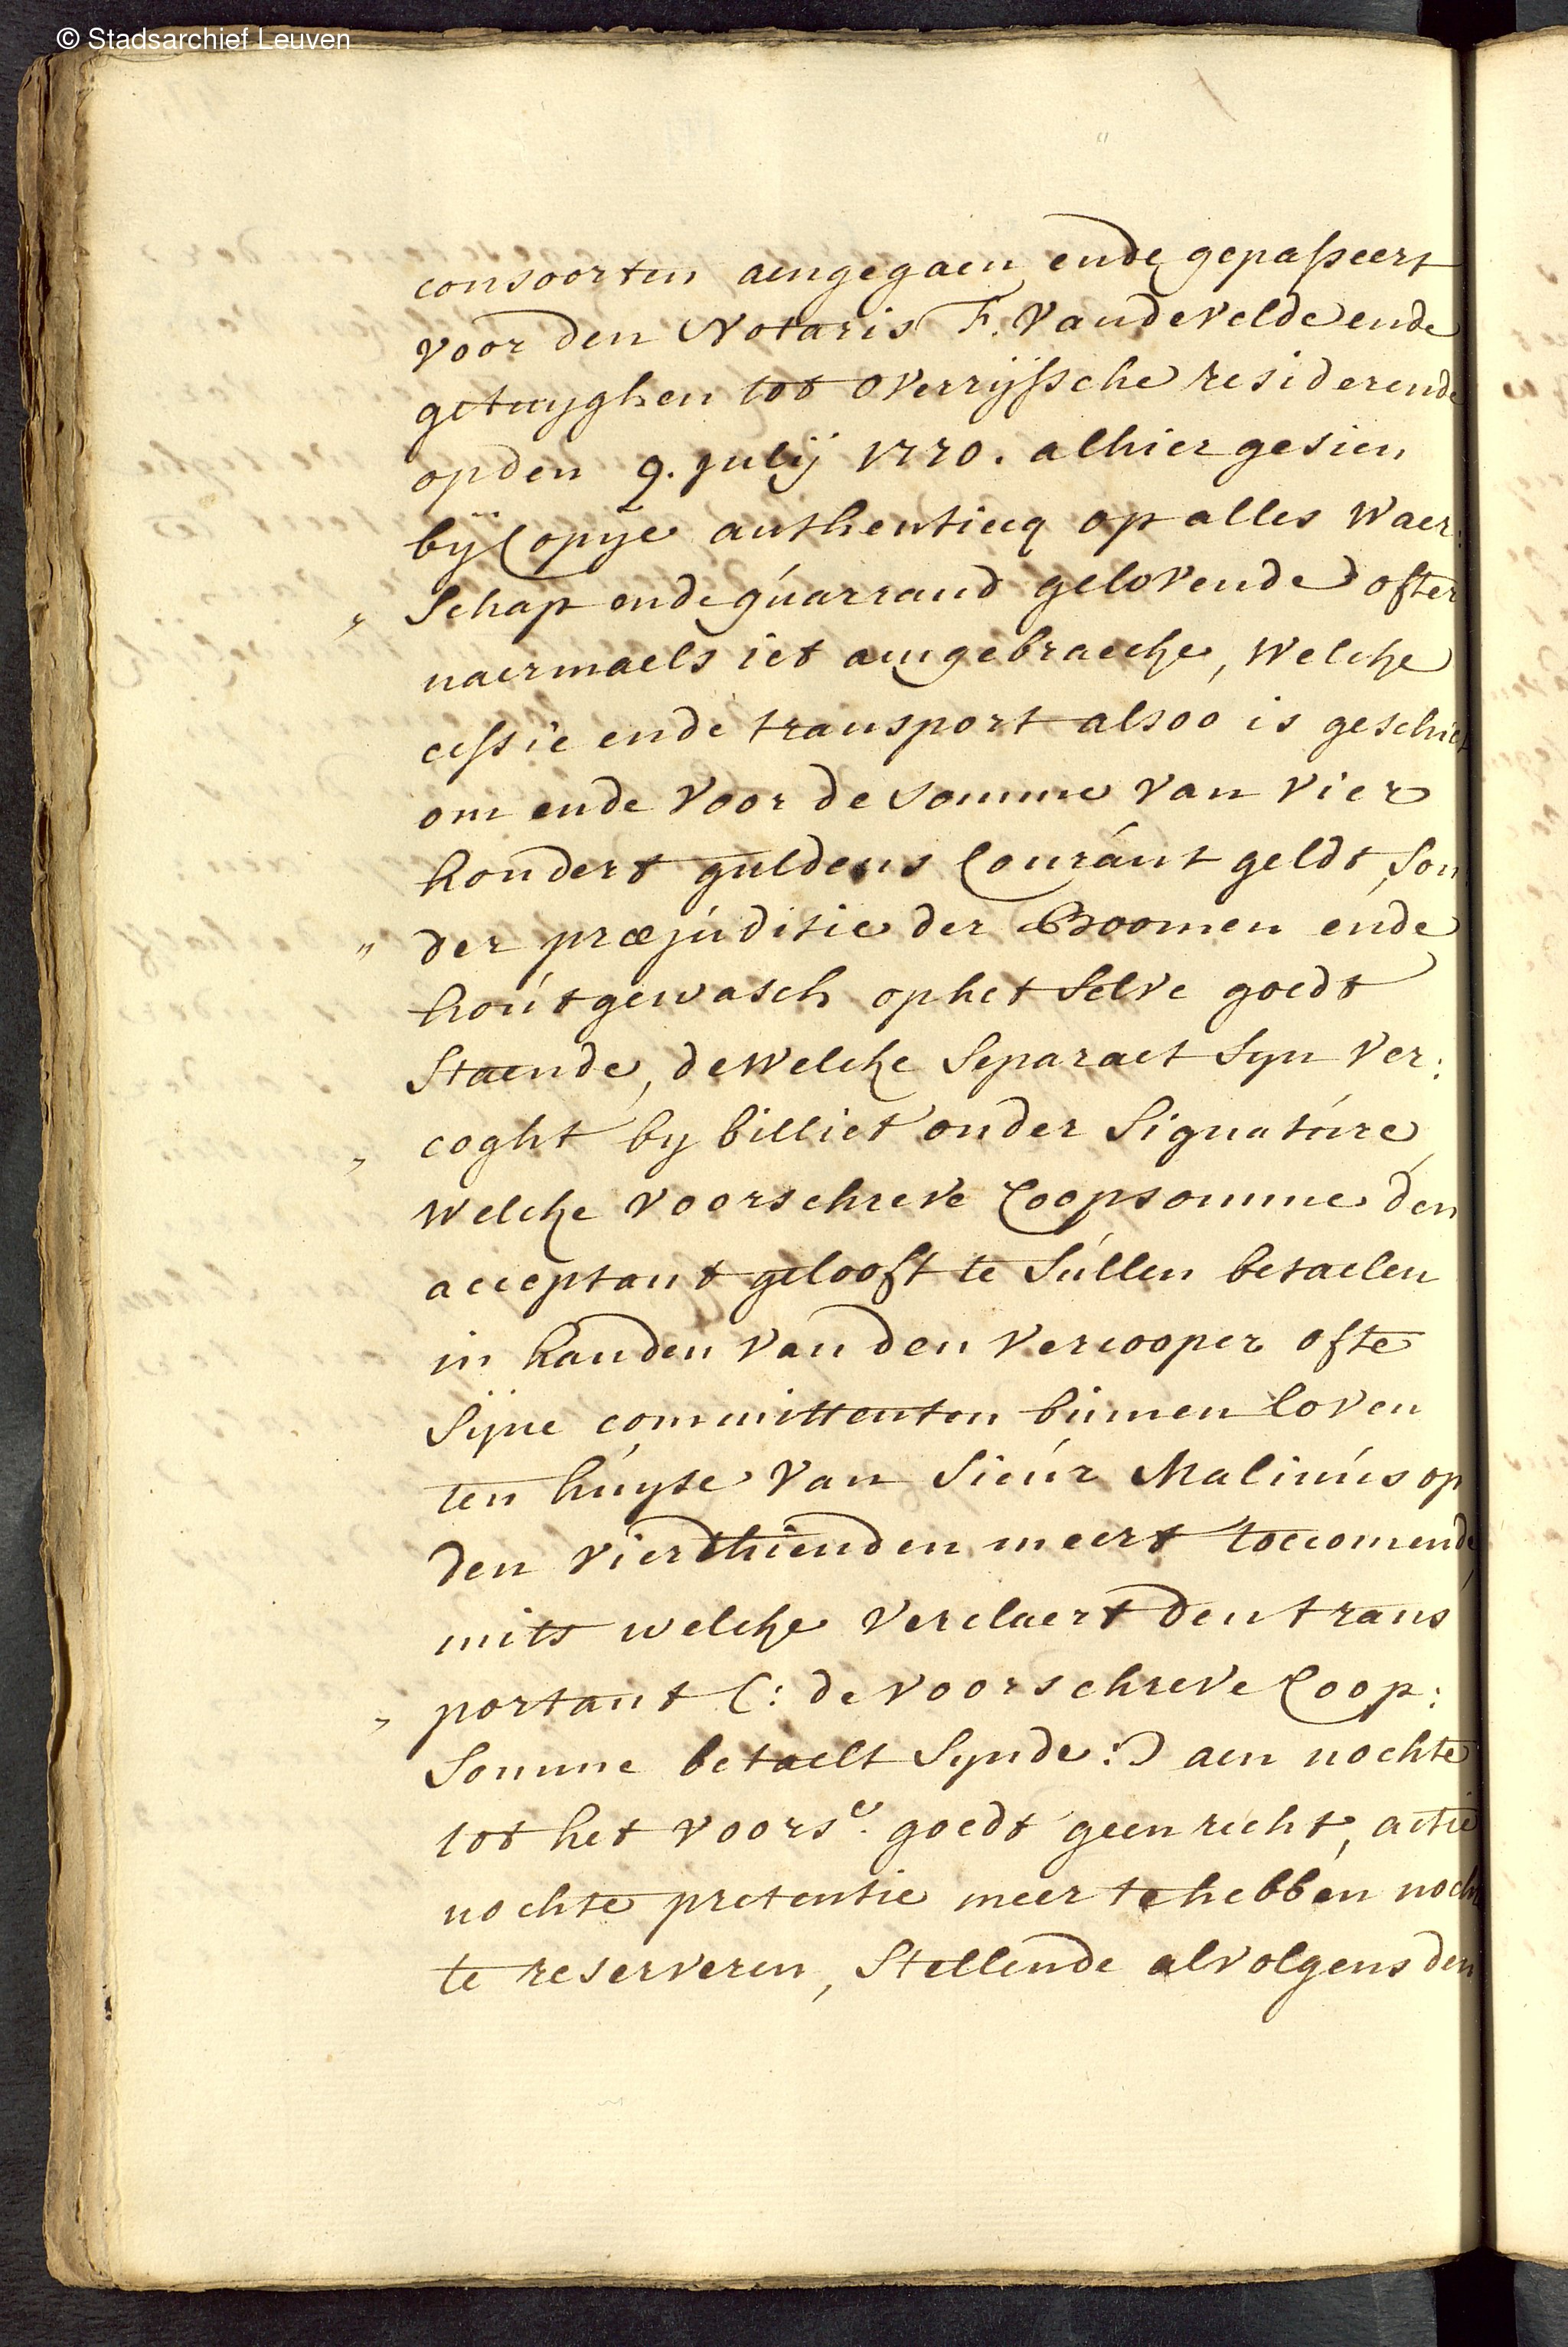 © Stadsarchief Leuven
consoorten aengegaen ende gepasseert
voor den Notaris F. Vandevelde ende
getuyghen tot overrijssche residerende
opden 9. julij 1770. alhier gesien
bij Copije authenticq op alles Waer:
„ Schap ende guarrand gelovende ofter
naermaels iet aengebraecke, Welcke
cessie ende transport alsoo is geschiet
om ende voor de somme van vier
hondert guldens Courant geldt, son
„ der præjuditie der Boomen ende
houtgewasch ophet Selve goedt
Staende, dewelcke Separaet Syn ver:
„ coght by billiet onder Signature,
Welcke voorschreve Coopsomme den
acceptant gelooft te Sullen betaelen
in handen van den vercooper ofte
Sijne committenten binnen loven
ten huyse van Sieur Malinus op
den vierthienden meert toecomende,
mits welcke verclaert den trans
„ portant (: de voorschreve Coop:
Somme betaelt Synde:) aen nochte
tot het voors.e goedt geen recht, actie
nochte pretentie meer te hebben noch
te reserveren, Stellende alvolgens den